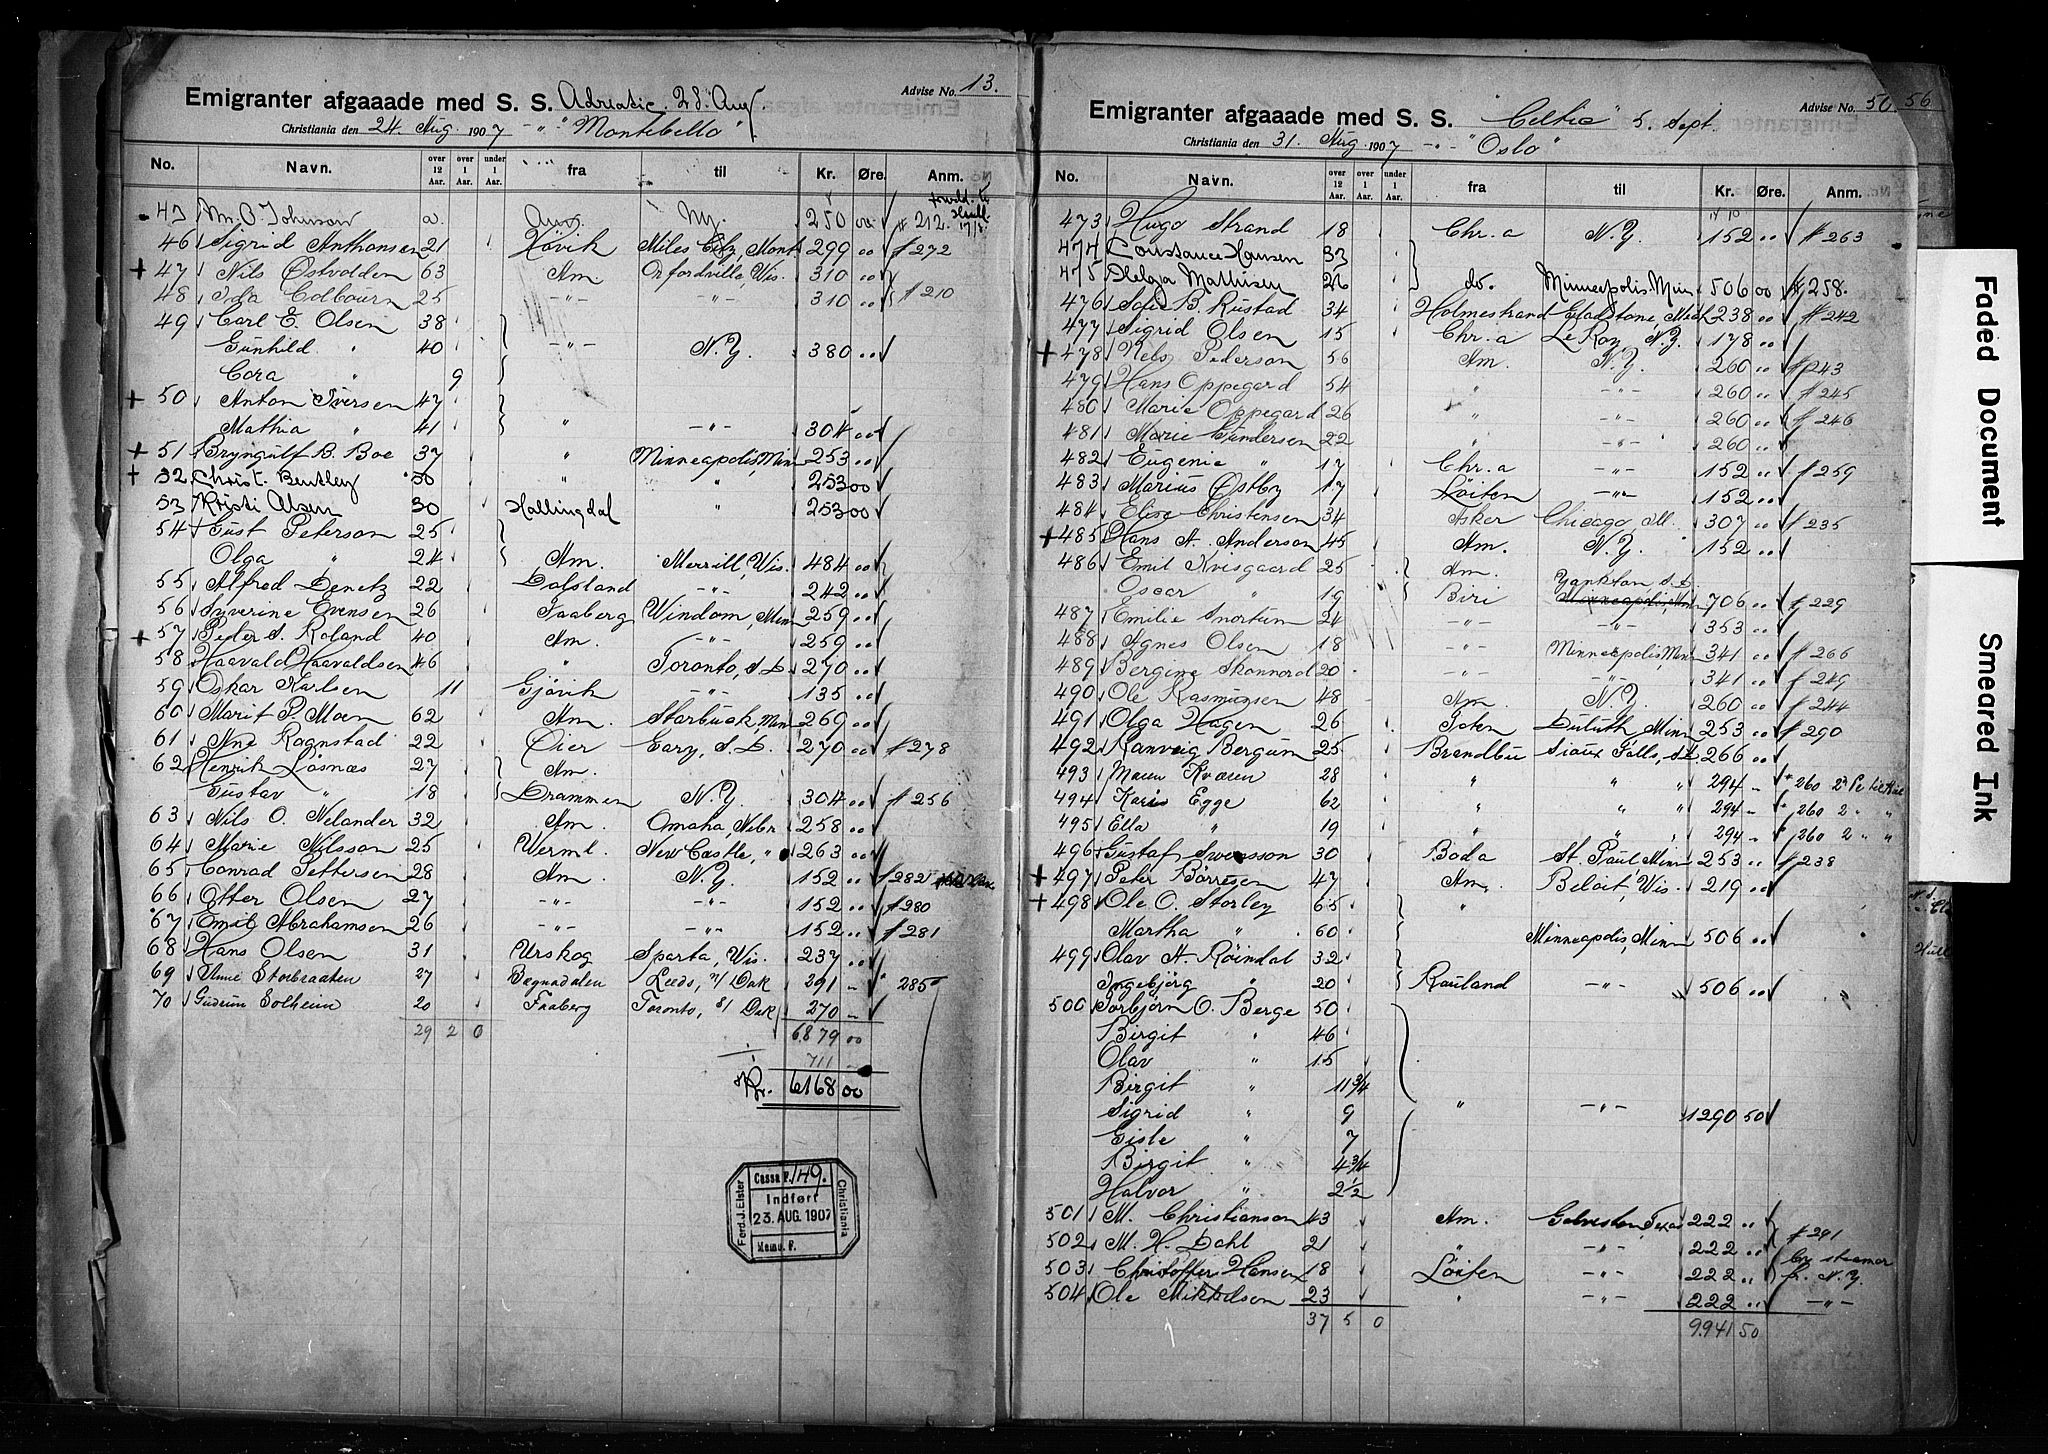 Advise No. 13.
Emigranter afgaaade med S. S. Adriatic. 28. Aug.
Christiania den 24. Aug. 1907 -"- "Montebello"
No. Navn. over 12 Aar. over 1 Aar. under 1 Aar. fra til Kr. Øre. Anm.
Mr. O. Johnson a. N.Y. 250 00 # 212.
46 Sigrid Anthonsen 21 Miles City, Mont. 299 00 # 272
+ 47 Nils Østvolden 63 Am. Orfordville, Wis. 310 00
48 Ida Colbourn 25 -"- -"- 310 00 # 210
49 Carl E. Olsen 38
Gunhild " 40 -"- N.Y. 380 00
Cora " 9
+ 50 Anton Iversen 47
Mathia " 41 " -"- 304 00
+ 51 Bryngulf B. Boe 37 " Minneapolis, Minn 253 00
+ 52 Christ. Bentley 50 " " 253 00
53 Kristi Olsen 30 Hallingdal " 253 00
54 Gust Peterson 25
Olga " 24 Am. Merrill, Wis. 484 00
55 Alfred Denetz 22 Dalsland -"- 242 00
56 Syverine Evensen 26 Faaberg Windom, Minn 259 00
+ 57 Peder S. Roland 40 Am. -"- 259 00
58 Haavald Haavaldsen 46 " Toronto, S.D. 270 00
59 Oskar Karlsen 11 Gjøvik -"- 135 00
60 Marit P. Moen 62 Am. Starbuck, Min 269 00
61 Ane Rognstad 22 Øier Gary, S.D. 270 00 # 278
62 Henrik Løsnæs 27 Am.
Gustav " 18 Drammen N.Y. 304 00 # 256
63 Nils O. Nelander 32 Am. Omaha, Nebr 258 00
64 Marie Nilsson 25 Werml. New Castle, " 263 00
65 Conrad Pettersen 28 Am. N.Y. 152 00 # 282
66 Etter Olsen 27 -"- -"- 152 00 # 280
67 Emil Abrahamsen 26 -"- -"- 152 00 # 281
68 Hans Olsen 31 Urskog Sparta, Wis. 237 00
69 Anne Storbraaten 27 Begnadalen Leeds, N/ Dak 291 - " 285
70 Gudrun Solheim 20 Faaberg Toronto, S/ Dak 270 -
29 2 0 6879 00
711
Kr. 6168 00
Cassa F. 149.
Indført
23. AUG. 1907
Memo. F.
Ferd. J. Elster
Christiania
Advise No. 50 56
Emigranter afgaaade med S. S. "Celtic" 5. Sept.
Christiania den 31. Aug. 1907 -"- "Oslo"
No. Navn. over 12 Aar. over 1 Aar. under 1 Aar. fra til Kr. Øre. Anm.
473 Hugo Strand 18 Chr.a N.Y. 152 00 # 263
474 Constance Hansen 33
475 Helga Mathisen 26 do. Minneapolis, Min 506 00 # 258.
476 Sofie B. Rustad 34 Holmestrand Gladstone, Mich 238 00 # 242
477 Sigrid Olsen 15 Chr.a Le Roy, N.Y. 178 00
+ 478 Nels Pederson 56 Am. N.Y. 260 00 # 243
479 Hans Oppegard 54 " -"- 260 00 # 245
480 Marie Oppegard 26 " -"- 260 00 # 246
481 Marie Gundersen 22 " -"- 260 00
482 Eugenie " 17 Chr.a -"- 152 00 # 259
483 Marius Østby 17 Løiten -"- 152 00
484 Elise Christensen 34 Asker Chicago, Ill. 307 00 # 235
+ 485 Hans A. Anderson 45 Am. N.Y. 152 00
486 Emil Kvisgaard 25 Am. Yankton S.D.
Oscar " 19 Biri Minneapolis, Min 706 00 # 229
487 Emilie Snortum 24 -"- -"- 353 00
488 Agnes Olsen 18 -"- Minneapolis, Min 341 00 # 266
489 Bergine Skonnord 20 -"- -"- 341 00 # 249
490 Ole Rasmussen 48 Am. N.Y. 260 00 # 244
491 Olga Hagen 26 Toten Duluth Minn 253 00 # 290
492 Ranveig Bergum 25 Brandbu Sioux Falls, S.D. 266 00
493 Maren Kværn 28 " " " 294 - # 260
494 Karis Egge 62 " " " 294 - # 260 2 " "
495 Ella " 19 " " " 294 - # 260 2 " "
496 Gustaf Swensson 30 Boda St. Paul, Minn 253 00 # 238
+ 497 Peter Børresen 47 Am. Beloit, Wis. 219 00
+ 498 Ole O. Storley 65 "
Martha " 60 Minneapolis, Minn 506 00
499 Olav H. Røindal 32
Ingebjørg " 20 Rauland -"- 506 00
500 Torbjørn O. Berge 50
Birgit " 46
Olav " 15
Birgit " 11 3/4
Sigrid " 9 " -"- 1290 50
Gisle " 7
Birgit " 4 3/4
Halvor " 2 1/2
501 M. Christianson 43 Am. Galveston, Texas 222 00 # 291
502 M. H. Dahl 21 " -"- 222 00 by steamer
503 Christoffer Hansen 18 Løiten -"- 222 00 fr. N.Y.
504 Ole Mikkelsen 23 " -"- 222 00 -"-
37 5 0 9941 50
Faded Document
Smeared Ink